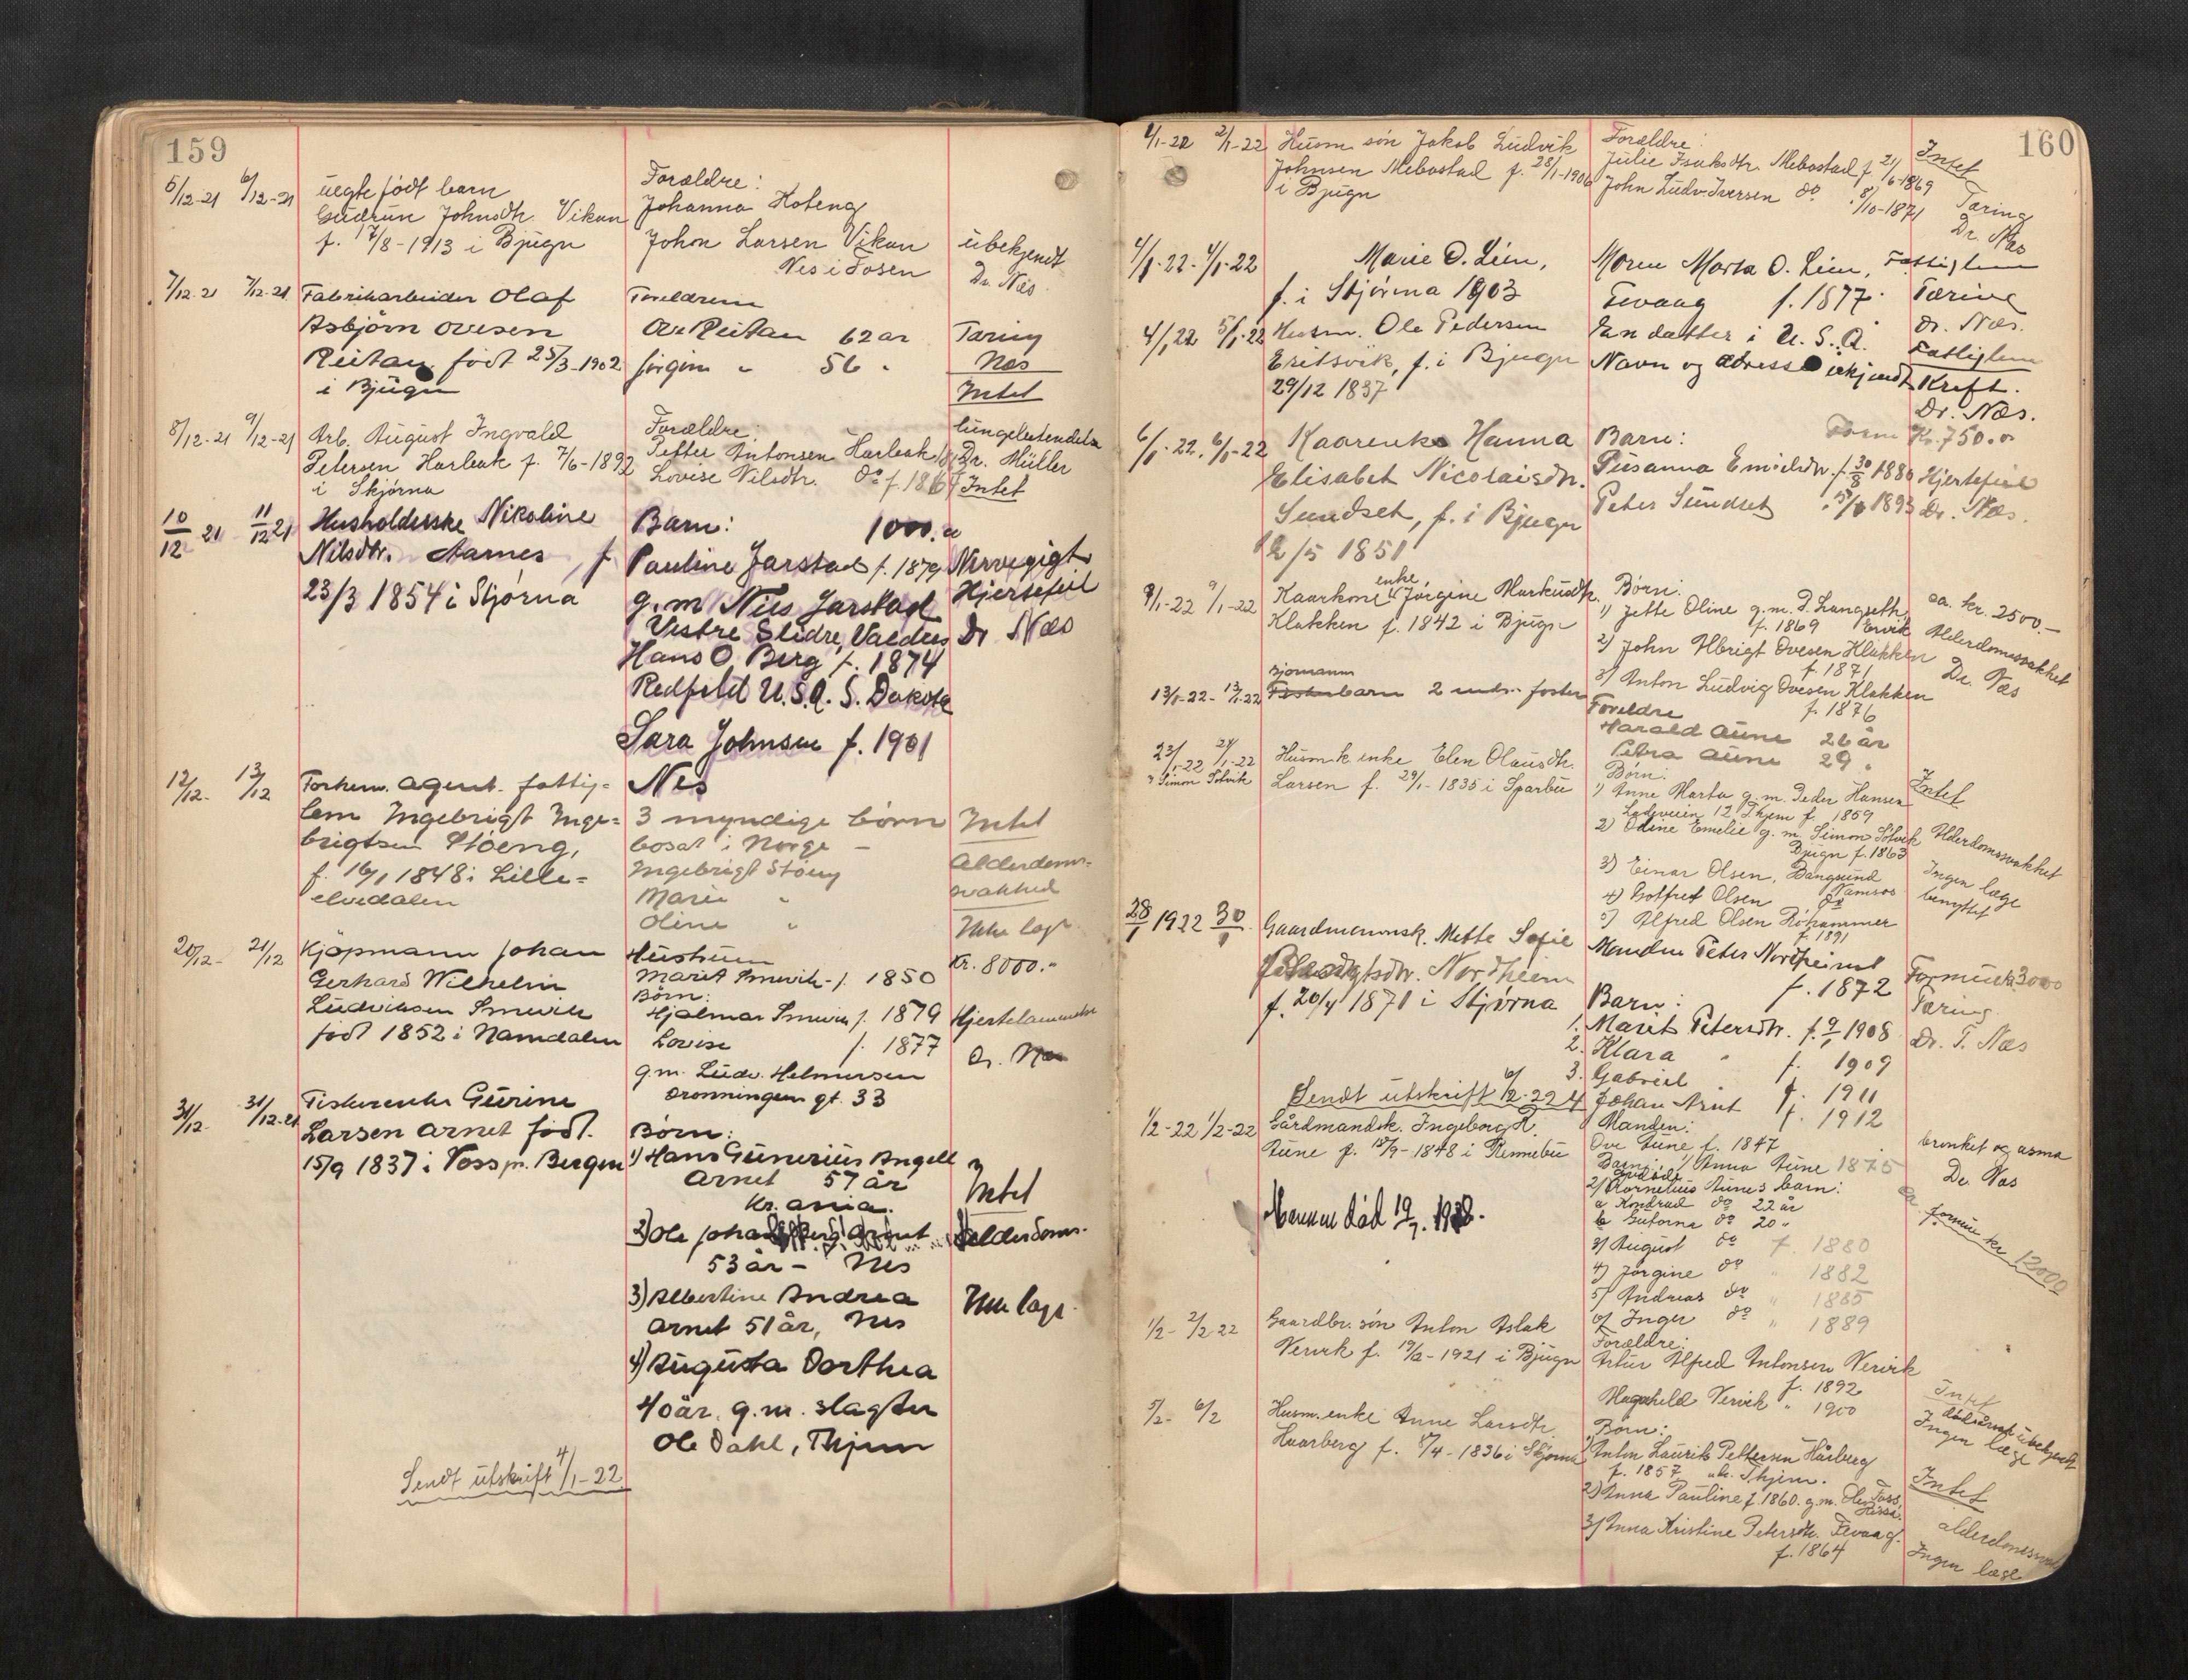 159
5/12-21 6/12-21 uegte född barn
Gudrun Johnsdtr. Vikan
f. 17/8-1913 i Bjugn
Forældre:
Johanna Hoteng
Johan Larsen Vikan
Nes i Fosen
übekjendt
Dr. Næs
7/12-21 7/12-21 Fabrikarbeider Olaf
Asbjörn Ovesen
Reitan född 25/3-1902
i Bjugn
Foreldrene
Ove Reitan 62 ar
Jörgine " 56 "
Tæring
Næs
Intet
8/12-21 9/12-21 Arb. August Ingvald
Petersen Harbak f. 7/6-1892
i Skjörna
Forældre:
Petter Antonsen Harbak
Lovise Nilsdtr. do f. 1864
lungebetendelse
Dr. Müller
Intet
10/12 21 11/12 21 Husholderske Nikoline
Nilsdtr. Aarnes, f
23/3 1854 i Stjørna
Barn: 1000.
Pauline Jarstad f. 1879
g.m Nils Jarstad
Vestre Slidre, Valders
Hans O. Berg f. 1874
Redfield U.S.A. S. Dakota
Sara Johnsen f. 1901
Nervegigt
Hjertefeil
Dr Næs
12/12- 13/12 Forhenv. agent. fattig-
lem Ingebrigt Inge-
brigtsen Stöeng,
f. 16/1 1848 i Lille-
elvedalen
Nes
3 myndige börn
bosat i Norge -
Ingebrigt Stöeng
Marie "
Oline "
Intet
Alderdoms-
svakhed
Ikke læge
20/12- 21/12 Kjöpmann Johan
Gerhard Wilhelm
Ludviksen Smevik
född 1852 i Namdalen
Hustruen
Marit Smevik - f. 1850
Börn:
Hjalmar Smevik f. 1879
Lovise f. 1877
g.m. Ludv. Helmersen
Dronningens gt. 33
Kr. 8000.-
Hjertelammelse
Dr. Næs
31/12- 31/12-21 Fiskerenke Gurine
Larsen Arnet född.
15/9 1837 i Voss pr. Bergen
Börn:
1) Hans Gunerius Angell
Arnet 57 år
Kr.ania.
2) Ole Johan Arnet
53 år - Nes
3) Albertine Andrea
Arnet 51 år, Nes
4) Augusta Dorthea
40 år. g.m. slagter
Ole Dahl, Thjem
Intet
Alderdoms-
Ikke læge
Sendt utskrift 4/1-22
160
1/1-22 2/1-22 Husm sön Jakob Ludvik
Johnsen Mebostad f. 28/1-1906
i Bjugn
Forældre:
Julie Isaksdtr. Mebostad f. 21/6-1869
John Ludv. Iversen do 8/10-1871
Intet
Tæring
Dr. Næs
4/1-22- 4/1-22 Marie O. Lien,
f. i Stjørna 1903
Moren Marta O. Lien,
Fevaag f. 1877.
Fattiglem
Tæring
Dr. Næs.
4/1 22 5/1-22 Husm. Ole Pedersen
Eritsvik, f. i Bjugn
29/12 1837
En datter i U.S.A.
Navn og adresse ukjendt
Fattiglem
Kreft.
Dr. Næs.
6/1-22. 6/1-22 Kaarenke Hanna
Elisabet Nicolaisdtr.
Sundset, f. i Bjugn
12/5 1851
Barn:
Susanna Emilsdtr. f. 30/8 1880
Peter Sundset 1893
Form Kr. 750.00
Hjertefeil
Dr. Næs.
9/1-22 9/1-22 Kaarkone enke, Jörgine Markusdtr.
Klakken f. 1842 i Bjugn
Börn:
1) Jette Oline g.m. P. Langseth,
f. 1869 Ervik
2) John Albrigt Ovesen Klakken
f. 1871
3) Anton Ludvig Ovesen Klakken
f. 1876
ca. kr. 2500.-
Alderdomssvakhet
Dr. Næs
13/1-22- 13/1-22 Sjömanns
barn 2 mdr. foster
Foreldre
Harald Aune 26 år
Petra Aune 29 "
23/1-22 24/1-22 Husmk enke Elen Olausdtr.
Simon Sölvik Larsen f. 29/1-1835 i Sparbu
Börn:
1) Anne Marta g.m. Peder Hansen
Ladeveien 12 Thjem f. 1859
2) Odine Emelie g.m. Simon Sölvik
Bjugn f. 1863
3) Einar Olsen, Bangsund
4) Gotfred Olsen Namsos
5) Alfred Olsen Röhammer
f. 1891
Intet
Alderdomssvakhet
Ingen læge
benyttet
28/1 1922 30/1 Gaardmannsk. Mette Sofie
Nordheim
f. 20/4 1871 i Stjørna
Manden Peter Nordheim
f. 1872
Barn:
1. Marit Petersdtr. f. 1908
2. Klara " f. 1909
3. Gabriel f. 1911
4 Johan Arnt f. 1912
Formue 3000
Tæring
Dr. T. Næs
Sendt utskrift 6/2-22
1/2-22 1/2-22 Gårdmandsk. Ingeborg K.
Aune f. 18/9-1848 i Rennebu
Mannen död 19/7. 1928.
Manden:
Ove Aune f. 1847
Barn: 1) Anna Aune 1875
2) Kornelius Aunes barn:
a Kondrad do 22 år
b Gutorna do 20 "
3) August do f. 1880
4) Jörgine do " 1882
5) Andreas do " 1885
6) Inger do " 1889
bronkit og asma
Dr. Næs
formue kr 12000
1/2- 2/2 22 Gaardbr. sön Anton Aslak
Vervik f. 19/12-1921 i Bjugn
Forældre:
Artur Alfred Antonsen Vervik
f. 1892
Magnhild Vervik " 1900
Intet
dödsårsak übekjendt
Ingen læge
5/2- 6/2 Husm.enke Anne Larsdtr.
Haarberg f. 8/4-1836 i Skjörna
Börn:
1) Anton Laurits Pettersen Hårberg
f. 1857 Thjem.
2) Anna Pauline f. 1860. g.m. Ole Foss,
Rissa.
3) Anna Kristine Petersdtr. Fevaag.
f. 1864
Intet
alderdomssvakhet
Ingen læge